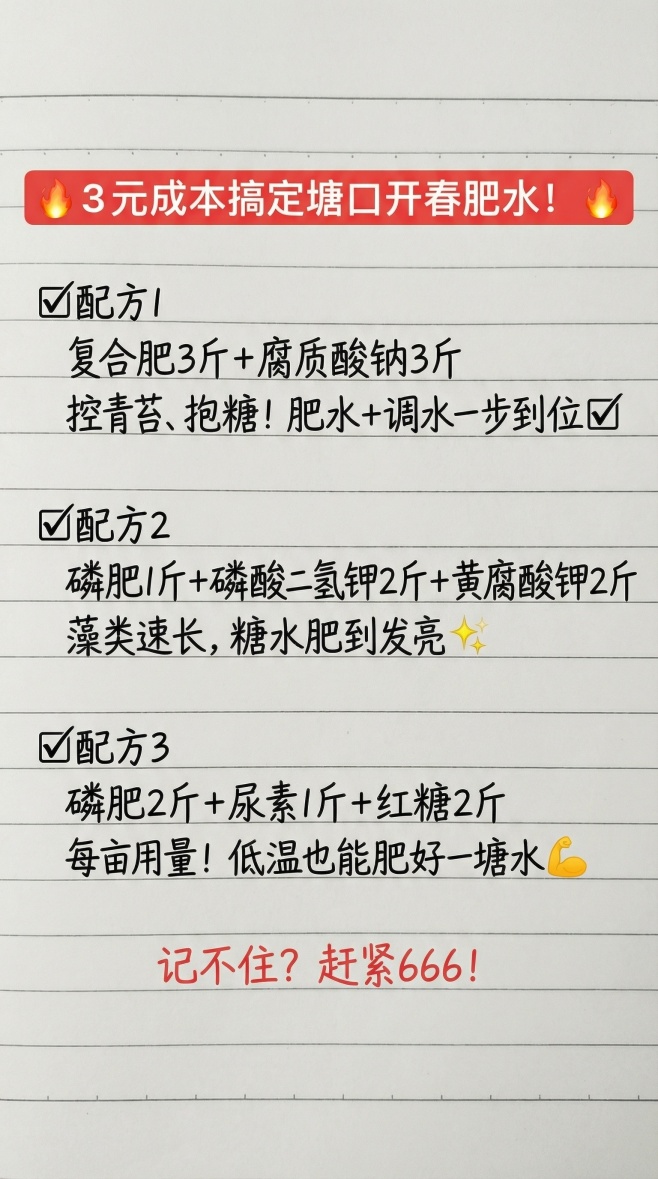 🔥3元成本搞定塘口开春肥水!🔥
☑配方1
复合肥3斤+腐质酸钠3斤
控青苔、抱糖!肥水+调水一步到位☑
☑配方2
磷肥1斤+磷酸二氢钾2斤+黄腐酸钾2斤
藻类速长,糖水肥到发亮✨
☑配方3
磷肥2斤+尿素1斤+红糖2斤
每亩用量!低温也能肥好一塘水💪
记不住?赶紧666!